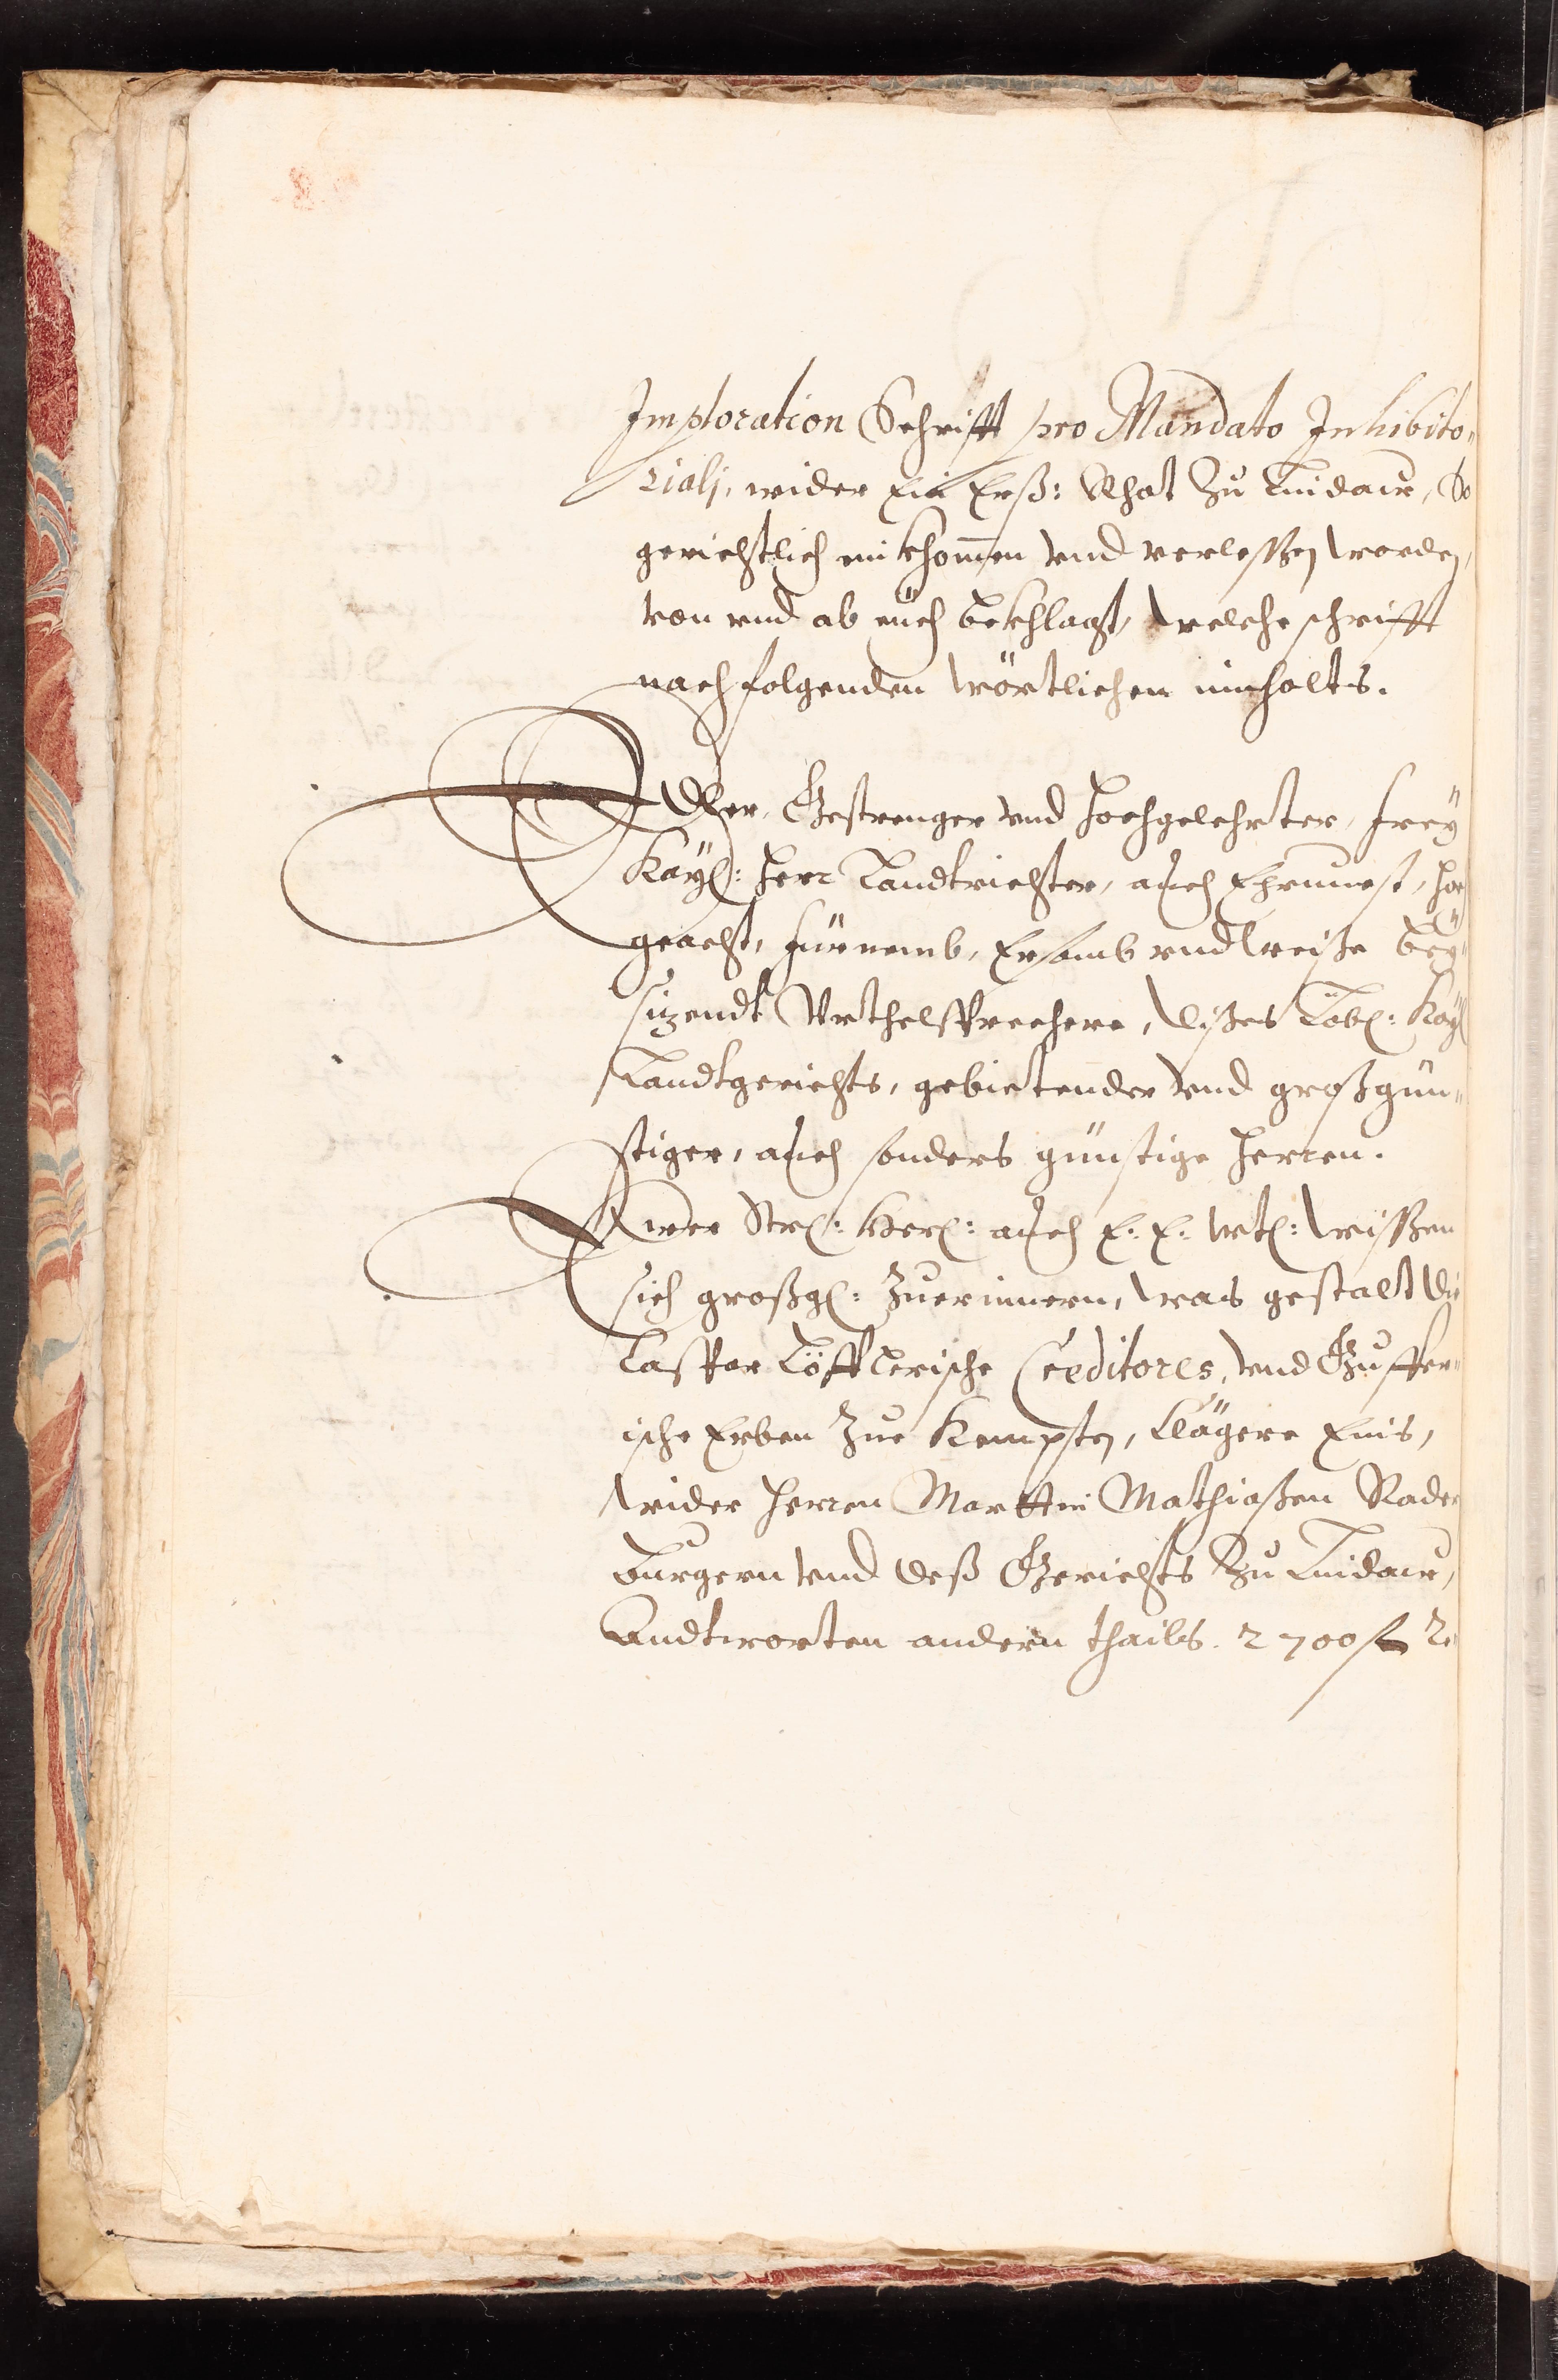 Imploration Schrifft pro Mandato Inhibito„
rialj, wider Ein Ers: Rhat Zu Lindaw, So
gerichtlich einkhom̃en vnd verleßen worden,
von vnd ab euch bekhlagt, welche schrifft
nachfolgenden wörtlichen innhalts.
Edler, Gestrenger vnd hochgelehrter, frey
Kayl: herr Landtrichter, auch Ehrnuest, hoch
geacht, fürnemb, Ersamb vnd weiße bey„
sizendt Vrthelsprechere, dißes Löbl: Kayl
Landtgerichts, gebietender vnd großgün„
stiger, auch sonders günstige herren.
Ewer Strl: Herl: auch E. E. wtl: wißen
sich großgl: Zuerinnern, was gestalt die
Caspar Löfflerische Creditores, vnd
ische Erben Zue Kempten, Clägere Eins,
wider herren Marttin Mathiaßen Rader
burgern vnd deß Gerichts Zu Lindaw,
Andtworten andern thails. 2700 fl